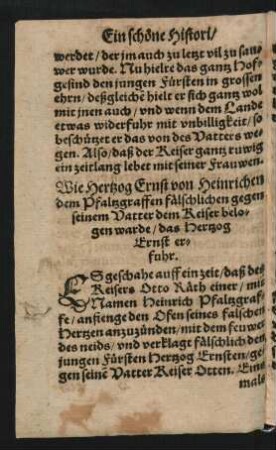 Ein schöne Histori/
werdet / der jm auch zu letzt vil zu sau-
wer wurde. Nu hielte das gantz Hof-
gesind den jungen Fürsten in grossen
ehrn / deßgleichē hielt er sich gantz wol
mit jnen auch / vnd wenn dem Lande
etwas widerfuhr mit vnbilligkeit / so
beschützet er das von des Vatters we-
gen. Also / daß der Keiser gantz ruwig
ein zeitlang lebet mit seiner Frauwen.
Wie Hertzog Ernst von Heinrichen
dem Pfaltzgraffen fälschlichen gegen
seinem Vatter dem Keiser belo-
gen warde / das Hertzog
Ernst er-
fuhr.
ES geschahe auff ein zeit / daß des
Keisers Otto Räth einer / mit
Namen Heinrich Pfaltzgraf-
fe / anfienge den Ofen seines falschen
Hertzen anzuzünden / mit dem feuwer
des neids / vnd verklagt fälschlich den
jungen Fürsten Hertzog Ernsten / ge-
gen seinē Vatter Keiser Otten. Eins
mals